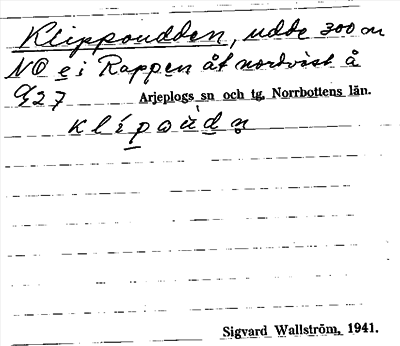 Klippoudden, udde 300 m
NO e i Rappen åt nordväst å
9/27 Arjeplogs sn och tg, Norrbottens län.
klípoùdn̥
Sigvard Wallström, 1941.